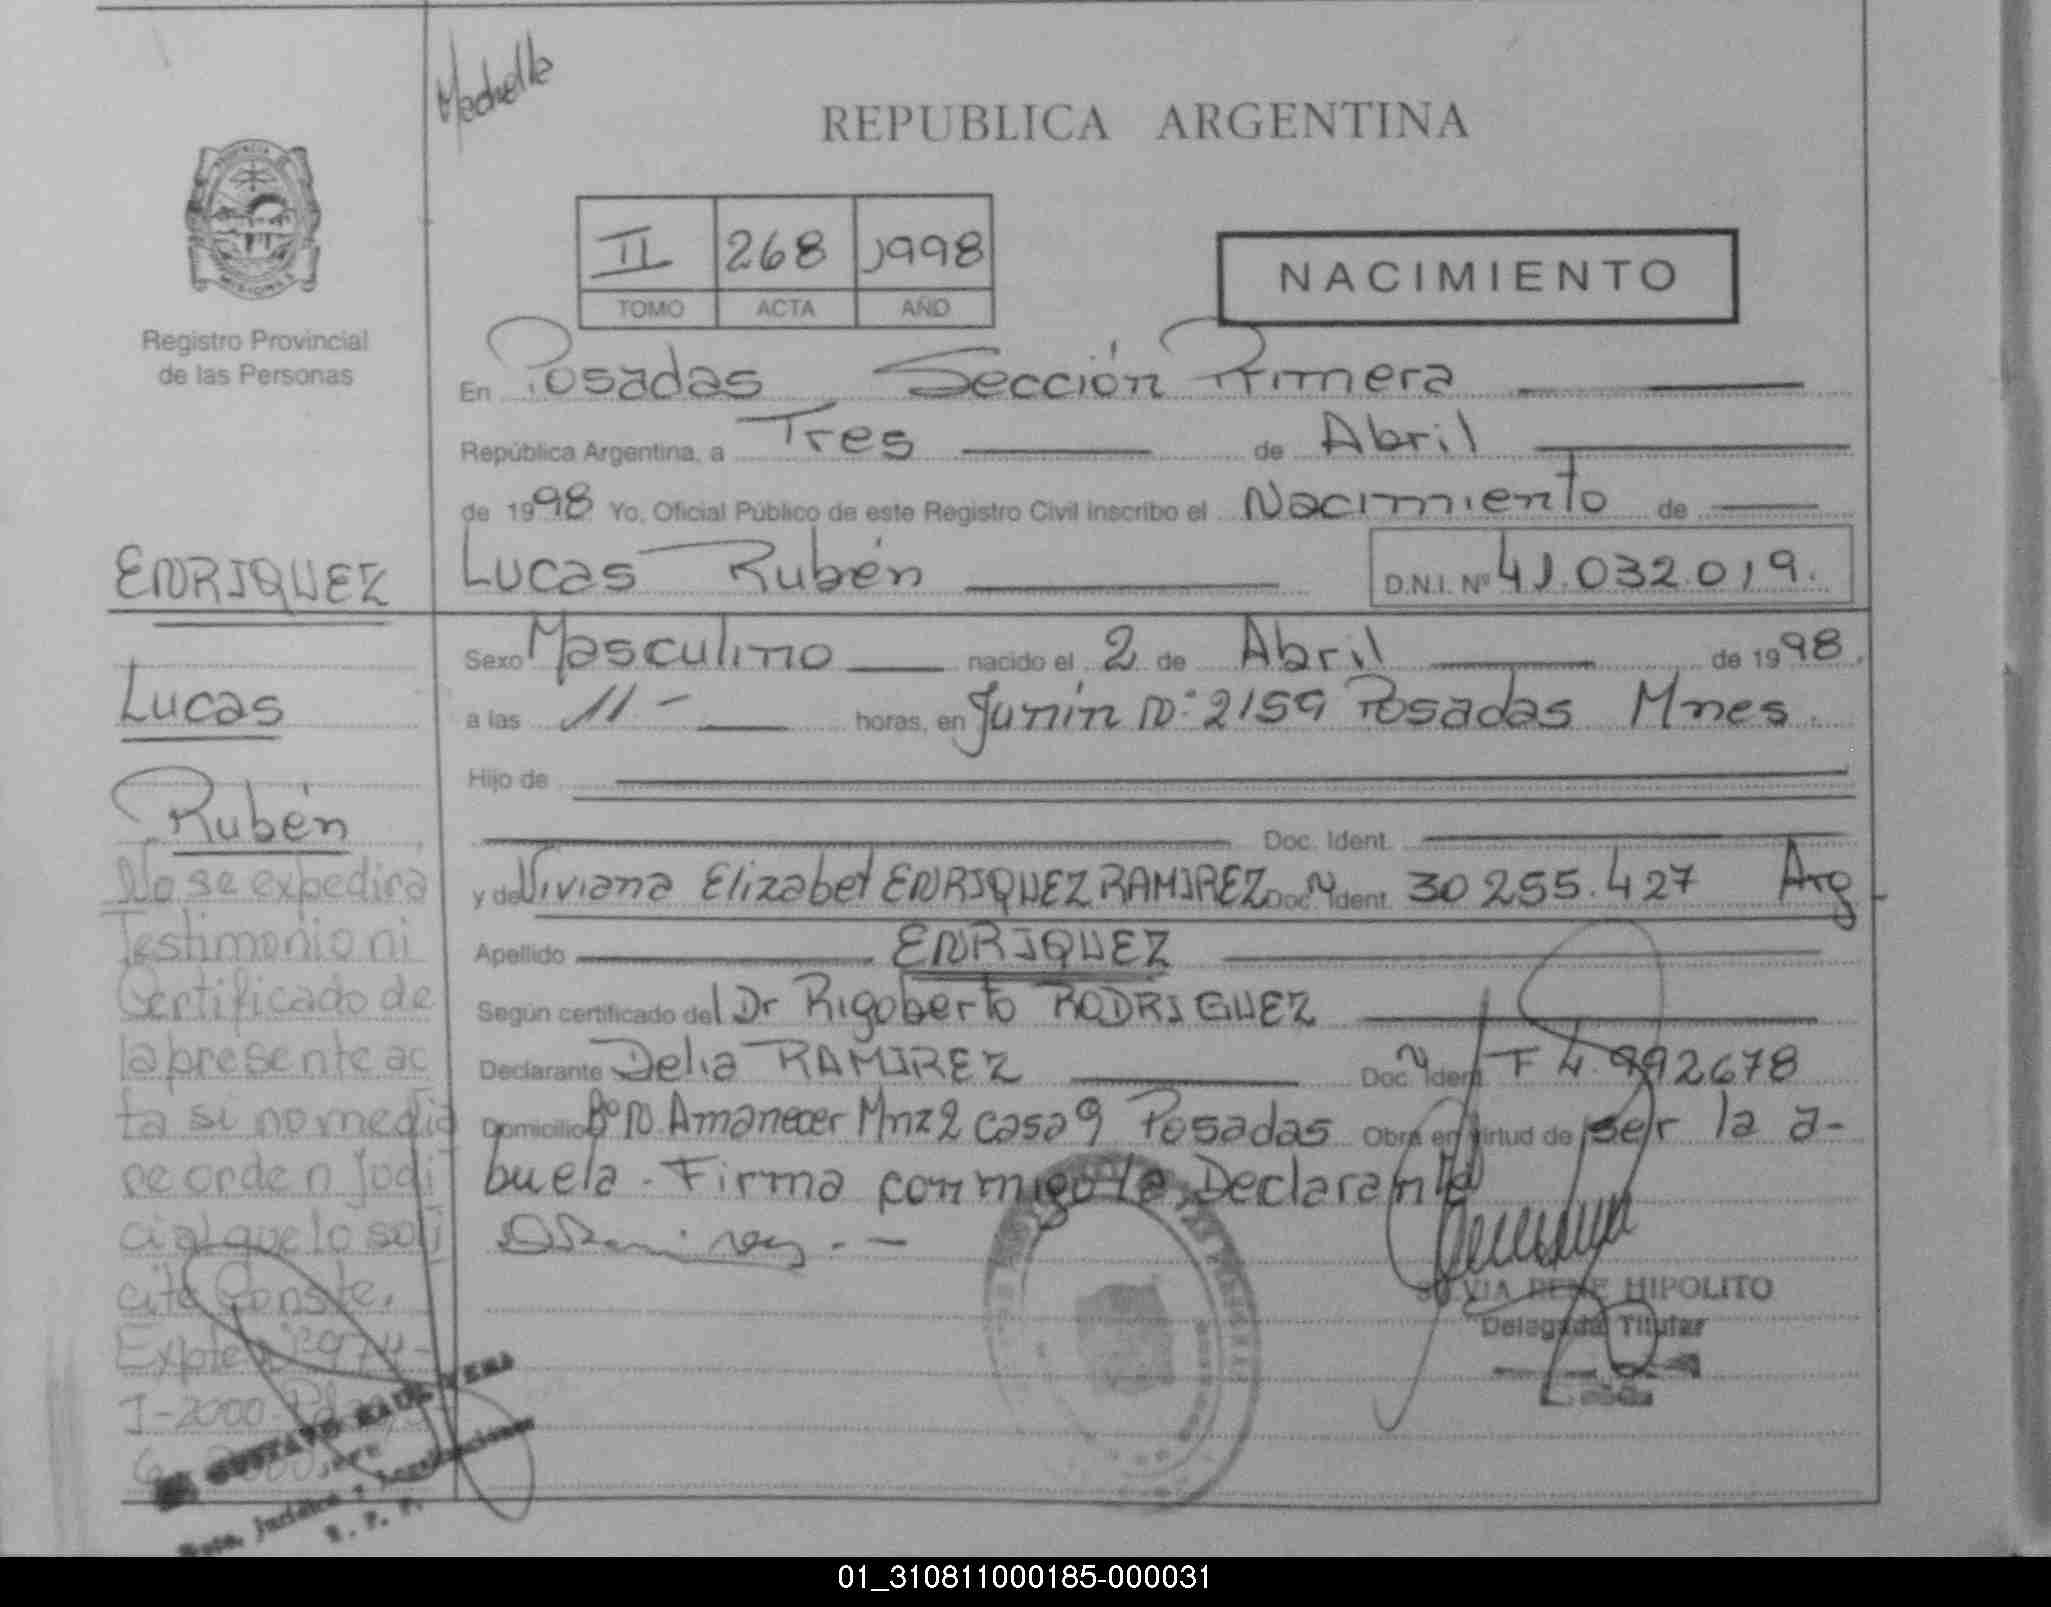 Machelle
REPUBLICA ARGENTINA
II 268 1998
TOMO ACTA AÑO
NACIMIENTO
Registro Provincial
de las Personas
En Posadas Sección Primera
República Argentina, a Tres de Abril
de 1998 Yo, Oficial Público de este Registro Civil inscribo el Nacimiento de
ENRIQUEZ
Lucas Rubén D.N.I. Nº 41.032.019.
Sexo Masculino nacido el 2 de Abril de 1998.
Lucas
a las 11- horas, en Junín Nº 2159 Posadas Mnes.
Hijo de
Rubén
Doc. Ident.
y de Viviana Elizabet ENRIQUEZ RAMIREZ Doc. N Ident. 30 255.427 Arg
Apellido ENRIQUEZ
Según certificado del Dr Rigoberto RODRIGUEZ
Declarante Delia RAMIREZ Doc. N Ident. F 4.992678
Domicilio Bº N. Amanecer Mnz 2 casa 9 Posadas Obra en virtud de ser la a-
buela. Firma conmigo la Declarante
DRamirez.-
No se expedira
Testimonio ni
Certificado de
la presente ac
ta si no media
re orden Judi
cial que lo soli
cite Conste.
Expte 2974-
I-2000
SILVIA RENE HIPOLITO
Delegada Titular
GUSTAVO RAUL VERA
Jefe
Dpto. Jurídico y Legalizaciones
R. P. P.
01_310811000185-000031